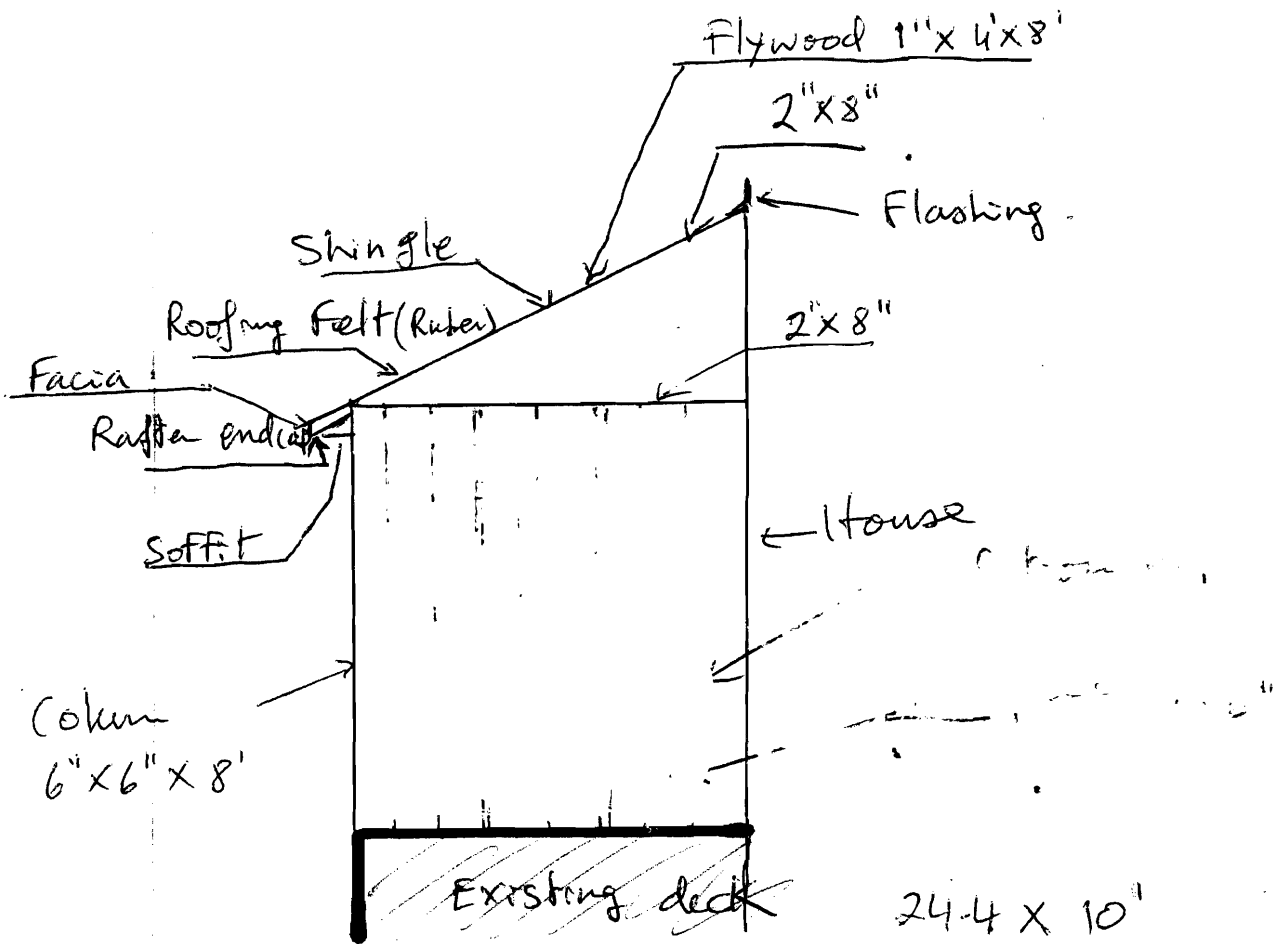 Flywood 1"x 4'x8'
2"x8"
Flashing
Shingle
Roofing Felt (Ruber)
2"x8"
Facia
Rafter endcap
Soffit
House
Column
6"x6"x8'
Existing deck
24.4 x 10'